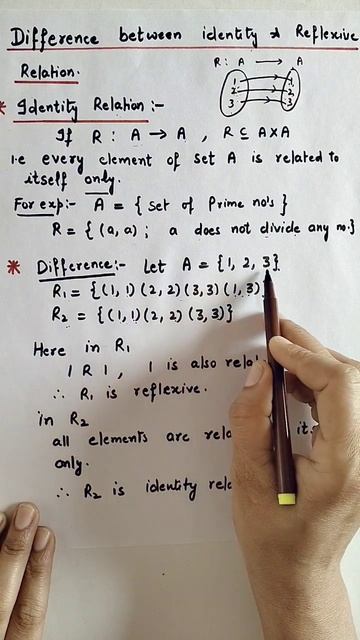 Difference between identity & Reflexive
Relation.
R : A → A
1 2 3
1 2 3
* Identity Relation :-
If R : A → A , R ⊆ A×A
i.e every element of set A is related to
itself only.
For exp:- A = { set of Prime no's }
R = { (a,a) ; a does not divide any no.}
* Difference:- Let A = {1, 2, 3}
R₁ = {(1,1)(2,2)(3,3)(1,3)}
R₂ = {(1,1)(2,2)(3,3)}
Here in R₁
1 R 1, 1 is also
∴ R₁ is reflexive.
in R₂
all elements are
only.
∴ R₂ is identity